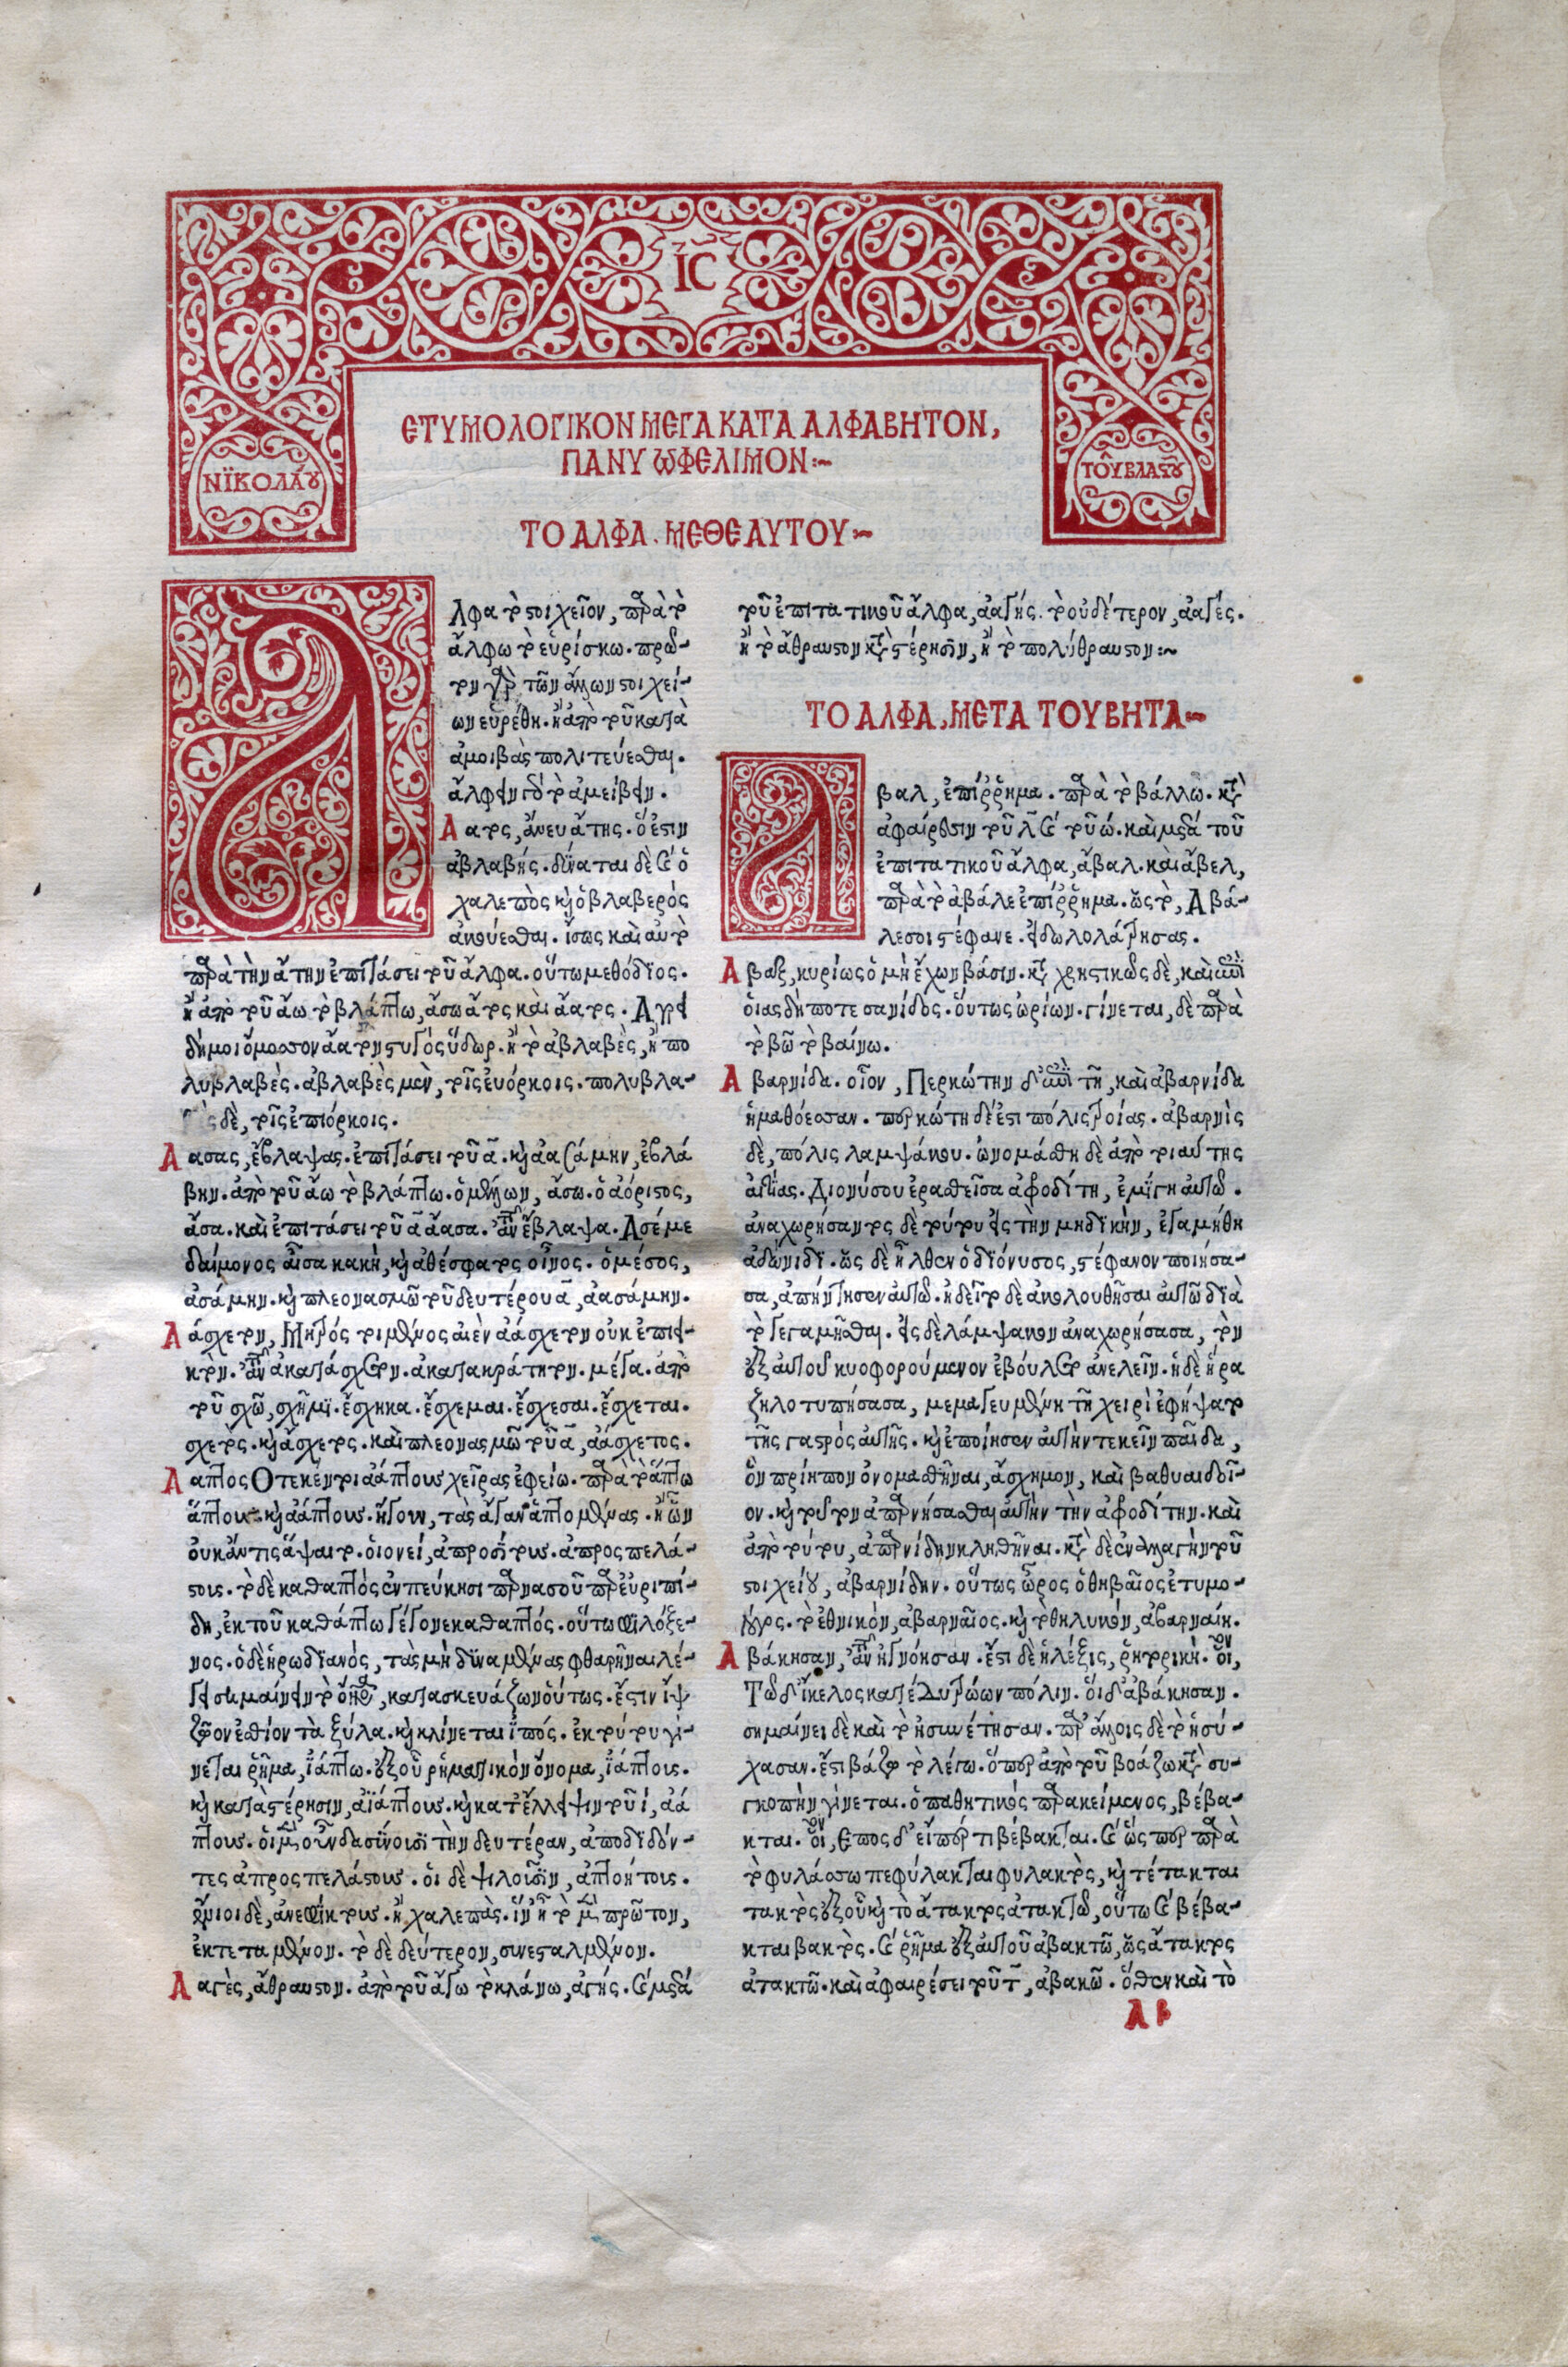 ΙC
ΕΤΥΜΟΛΟΓΙΚΟΝ ΜΕΓΑ ΚΑΤΑ ΑΛΦΑΒΗΤΟΝ,
ΠΑΝΥ ΩΦΕΛΙΜΟΝ:~
ΝΪΚΟΛΆΟΥ
ΤΟῦ ΒΛΑΣΤΟῦ
ΤΟ ΑΛΦΑ. ΜΕΘ ΕΑΥΤΟΥ:~
Α
λφα τὸ στοιχεῖον, παρὰ τὸ
ἄλφω τὸ εὑρίσκω. πρῶ-
τον γὰρ τῶν ἄλλων στοιχεί-
ων εὑρέθη. ἢ ἀπὸ τοῦ κατὰ
ἀμοιβὰς πολιτεύεσθαι.
ἄλφειν γὰρ τὸ ἀμείβειν.
Ἄατος, ἄνευ ἄτης. ὅ ἐστιν
ἀβλαβής. δύναται δὲ καὶ ὁ
χαλεπὸς καὶ ὁ βλαβερὸς
ἀκούεσθαι. ἴσως καὶ αὐτὸ
παρὰ τὴν ἄτην ἐπιτάσει τοῦ ἄλφα. οὕτω μεθόδϊος.
ἢ ἀπὸ τοῦ ἄω τὸ βλάπτω, ἄσω ἄτος καὶ ἄατος. Ἄγρει
δή μοι ὄμοσσον ἄατον στυγὸς ὕδωρ. ἢ τὸ ἀβλαβὲς, ἢ πο
λυβλαβές. ἀβλαβὲς μὲν, τοῖς εὐόρκοις. πολυβλα-
ὲς δὲ, τοῖς ἐπιόρκοις.
Ἄασας, ἔβλαψας. ἐπιτάσει τοῦ α. καὶ ἀασάμην, ἐβλά
βην. ἀπὸ τοῦ ἄω τὸ βλάπτω. ὁ μέλλων, ἄσω. ὁ ἀόριστος,
ἄσα. καὶ ἐπιτάσει τοῦ α ἄασα. ἀντὶ τοῦ ἔβλαψα. Ἆσέ με
δαίμονος αἶσα κακὴ, καὶ ἀθέσφατος οἶνος. ὁ μέσος,
ἀσάμην. καὶ πλεονασμῶ τοῦ δευτέρου α, ἀασάμην.
Ἀάσχετον, Μητρός τοι μένος αἰὲν ἀάσχετον οὐκ ἐπιει-
κτόν. ἀντὶ τοῦ ἀκατάσχετον. ἀκατακράτητον. μέγα. ἀπὸ
τοῦ σχῶ, σχῆμϊ. ἔσχηκα. ἔσχεμαι. ἔσχεσαι. ἔσχεται.
σχετός. καὶ ἄσχετος. καὶ πλεονασμῶ τοῦ α, ἀάσχετος.
Ἄαπτος Ὅτε κέν τοι ἀάπτους χεῖρας ἐφείω. παρὰ τὸ ἅπτω
ἄπτους καὶ ἀάπτους. ἤγουν, τὰς ἄγαν ἁπτομένας. ἢ ὧν
οὐκ ἄν τις ἅψαιτο. οἱονεὶ, ἀπροσίτους. ἀπροσπελά-
στοις. τὸ δὲ καθαπτὸς ἐν πεύκησι παρνασοῦ παρ' εὐριπί-
δη, ἐκ τοῦ καθάπτω γέγονε καθαπτός. οὕτω φιλόξε-
νος. ὁ δὲ ἡρωδϊανός, τὰς μὴ δϋναμένας φθαρῆναι λέ-
ζῶον ἐσθίον τὰ ξύλα. καὶ κλίνεται ἶπός. ἐκ τούτου γί-
νεται ῥῆμα, ἰάπτω. ἐξ οὗ ῥηματικὸν ὄνομα, ἰάπτοις.
καὶ κατὰ στέρησιν, ἀϊάπτους. καὶ κατ' ἔλλειψιν τοῦ ι, ἀά
πτους. οἱ μὲν οὖν δασύνουσι τὴν δευτέραν, ἀποδϊδόν-
τες ἀπροσπελάστους. οἱ δὲ ψιλοῦσιν, ἀπτοήτοις.
ἔνιοι δὲ, ἀνεφίκτους. ἢ χαλεπάς. ἵν' ἦ τὸ μὲν πρῶτον,
ἐκτεταμένον. τὸ δὲ δεύτερον, συνεσταλμένον.
Ἀαγὲς, ἄθραυστον. ἀπὸ τοῦ ἄγω τὸ κλάνω, ἀγής. καὶ μετὰ
τοῦ ἐπιτατικοῦ ἄλφα, ἀαγής. τὸ οὐδέτερον, ἀαγές.
ἢ τὸ ἄθραυστον κατὰ στέρησιν, ἢ τὸ πολύθραυστον:~
ΤΟ ΑΛΦΑ, ΜΕΤΑ ΤΟΥ ΒΗΤΑ~
Α
βαλ, ἐπίῤῥημα. παρὰ τὸ βάλλω. κατὰ
ἀφαίρεσιν τοῦ λ καὶ τοῦ ω. καὶ μετὰ τοῦ
ἐπιτατικοῦ ἄλφα, ἄβαλ. καὶ ἄβελ,
παρὰ τὸ ἀβάλε ἐπίῤῥημα. ὥς τὸ, Ἀβά-
λε σοι στέφανε. εἰδωλολάτρησας.
Ἄβαξ, κυρίως ὁ μὴ ἔχων βάσιν. καταχρηστικῶς δὲ, καὶ ἐπὶ
οἵας δήποτε σανίδος. οὕτως ὠρίων. γίνεται, δὲ παρὰ
τὸ βῶ τὸ βαίνω.
Ἀβαρνίδα. οἷον, Περκώτην δ' ἐπὶ τῆ, καὶ ἀβαρνίδα
ἠμαθόεσσαν. περκώτη δέ ἐστι πόλις τροίας. ἀβαρνὶς
δὲ, πόλις λαμψάκου. ὠνομάσθη δὲ ἀπὸ τοιαύτης
αἰτίας. Διονύσου ἐρασθεῖσα ἀφροδίτη, ἐμίγη αὐτῶ.
ἀναχωρήσαντος δὲ τούτου εἰς τὴν ἰνδϊκὴν, ἐγαμήθη
ἀδώνιδϊ. ὡς δὲ ἦλθεν ὁ δϊόνυσος, στέφανον ποιήσα-
σα, ἀπήντησεν αὐτῶ. ἠδεῖτο δὲ ἀκολουθῆσαι αὐτῶ δϊὰ
τὸ γεγαμῆσθαι. εἰς δὲ λάμψακον ἀναχωρήσασα, τὸν
ἐξ αὐτοῦ κυοφορούμενον ἐβούλετο ἀνελεῖν. ἡ δὲ ἥρα
ζηλοτυπήσασα, μεμαγευμένη τῆ χειρὶ ἐφήψατο
τῆς γαστρὸς αὐτῆς. καὶ ἐποίησεν αὐτὴν τεκεῖν παῖδα,
ὃν πρίηπον ὀνομασθῆναι, ἄσχημον, καὶ βαθυαιδοῖ-
ον. καὶ τοῦτον ἀπαρνήσασθαι αὐτὴν τὴν ἀφροδίτην. καὶ
ἀπὸ τούτου, ἀπαρνίδην κληθῆναι. κατὰ δὲ ἐναλλαγὴν τοῦ
στοιχείου, ἀβαρνίδην. οὕτως ὦρος ὁ θηβαῖος ἐτυμο-
λόγος. τὸ ἐθνικὸν, ἀβαρναῖος. καὶ τὸ θηλυκὸν, ἀβαρναίη.
Ἀβάκησαν, ἀντὶ τοῦ ἠγνόησαν. ἔστι δὲ ἡ λέξις, ῥητορική. οἷον,
Τῶ δ' ἴκελος κατέδυ τρώων πόλιν. οἱ δ' ἀβάκησαν.
σημαίνει δὲ καὶ τὸ ἠσυνέτησαν. παρ' ἄλλοις δὲ τὸ ἡσύ-
χασαν. ἔστι βάζω τὸ λέγω. ὅπερ ἀπὸ τοῦ βοάζω κατὰ συ-
γκοπὴν γίνεται. ὁ παθητικὸς παρακείμενος, βέβα-
κται. οἷον, Ἔπος δ' εἴπερ τι βέβακται. καὶ ὥσπερ παρὰ
τὸ φυλάσσω πεφύλακται φυλακτὸς, καὶ τέτακται
τακτὸς ἐξ οὗ καὶ τὸ ἄτακτος ἀτακτῶ, οὕτω καὶ βέβα-
κται βακτός. καὶ ῥῆμα ἐξ αὐτοῦ ἀβακτῶ, ὡς ἄτακτος
ἀτακτῶ. καὶ ἀφαιρέσει τοῦ τ, ἀβακῶ. ὅθεν καὶ τὸ
Α β